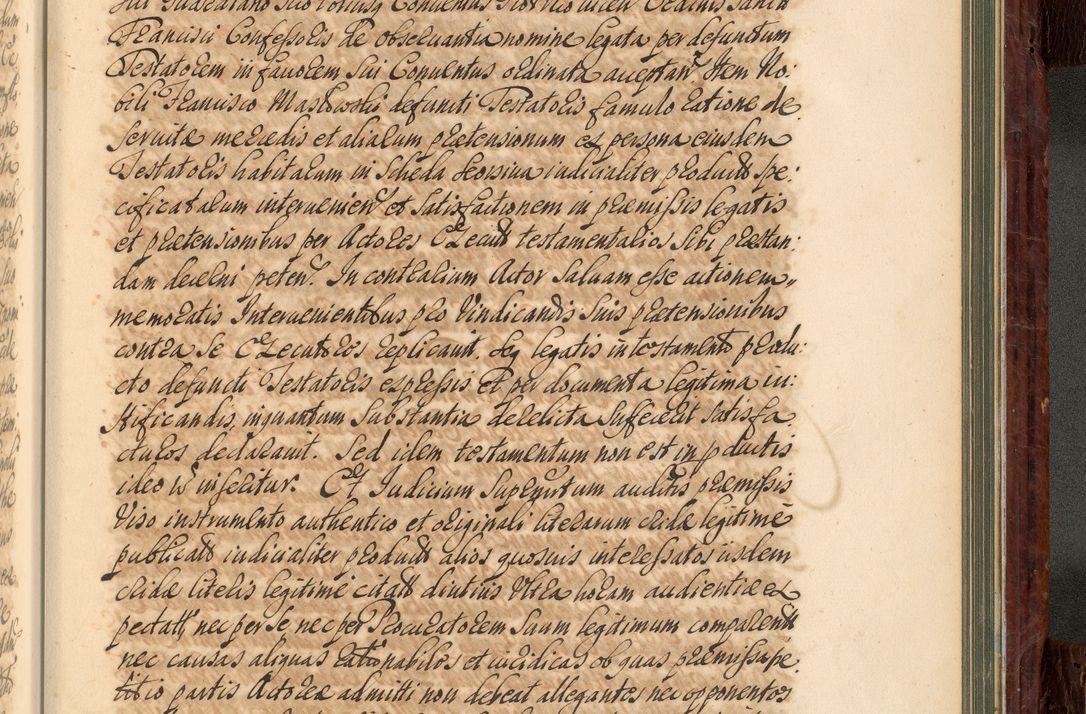 Francisci Confessoris de observantia nomine legata per defunctum
Testatorem in favorem sui Conventus ordinata acceptan. Item No:
bili Francisco Maskowski defuncti Testatoris famulo ratione de
servitæ mercedis et aliarum prætensionum ex persona eiusdem
Testatoris habitarum in scheda seorsiva iudicialiter producta spe:
cificatarum intervenien. et satisfactionem in præmissis legatis
et prætensionibus per Actores Executt testamentarios sibi præstan:
dam decerni peten. In contrarium Actor salvam esse actionem
memoratis Intervenientibus pro vindicandis suis prætensionibus
contra se Executores replicavit. Seq legatis in testamento produ:
cto defuncti Testatoris expressis et per documenta legitima iu:
stificandis, inquantum substantia derelicta suffecerit satisfa
cturos declaravit. Sed idem testamentum non est in productis
ideo n inseritur. Et Judicium supenrtum auditis præmissis
viso instrumento authentico et originali literarum cridæ legitime
publicatt iudicialiter productt alios quosvis interessatos iisdem
cridæ literis legitime citatt diutius ultra horam audientiæ ex
pectatt, nec per se nec per Procuratorem suum legitimum comparentt
nec causas aliquas rationabiles et iuridicas ob quas præmissa pe
titio partis Actoreæ admitti non debeat allegantes nec opponentes